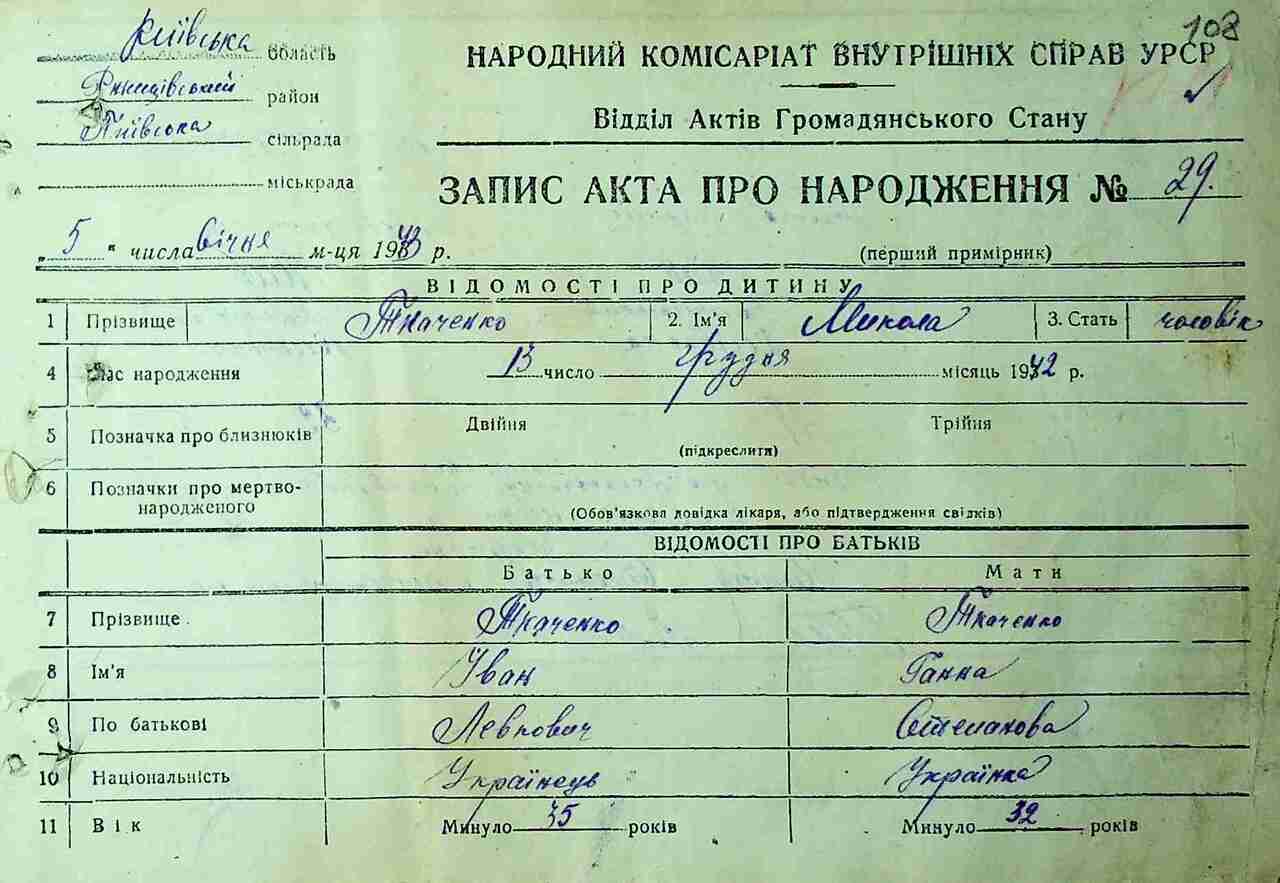 108
Київська область
район
Київська сільрада
міськрада
НАРОДНИЙ КОМІСАРІАТ ВНУТРІШНІХ СПРАВ УРСР
Відділ Актів Громадянського Стану
ЗАПИС АКТА ПРО НАРОДЖЕННЯ № 29.
„5" числа січня м-ця 1943 р.
(перший примірник)
ВІДОМОСТІ ПРО ДИТИНУ
1 Прізвище Ткаченко 2. Ім'я Микола 3. Стать чоловік
4 Час народження 13 число грудня місяць 1942 р.
5 Позначка про близнюків Двійня Трійня
(підкреслити)
6 Позначки про мертво-
народженого
(Обов'язкова довідка лікаря, або підтвердження свідків)
ВІДОМОСТІ ПРО БАТЬКІВ
Батько Мати
7 Прізвище Ткаченко Ткаченко
8 Ім'я Іван Ганна
9 По батькові Левкович Степанова
10 Національність Українець Українка
11 Вік Минуло 35 років Минуло 32 років